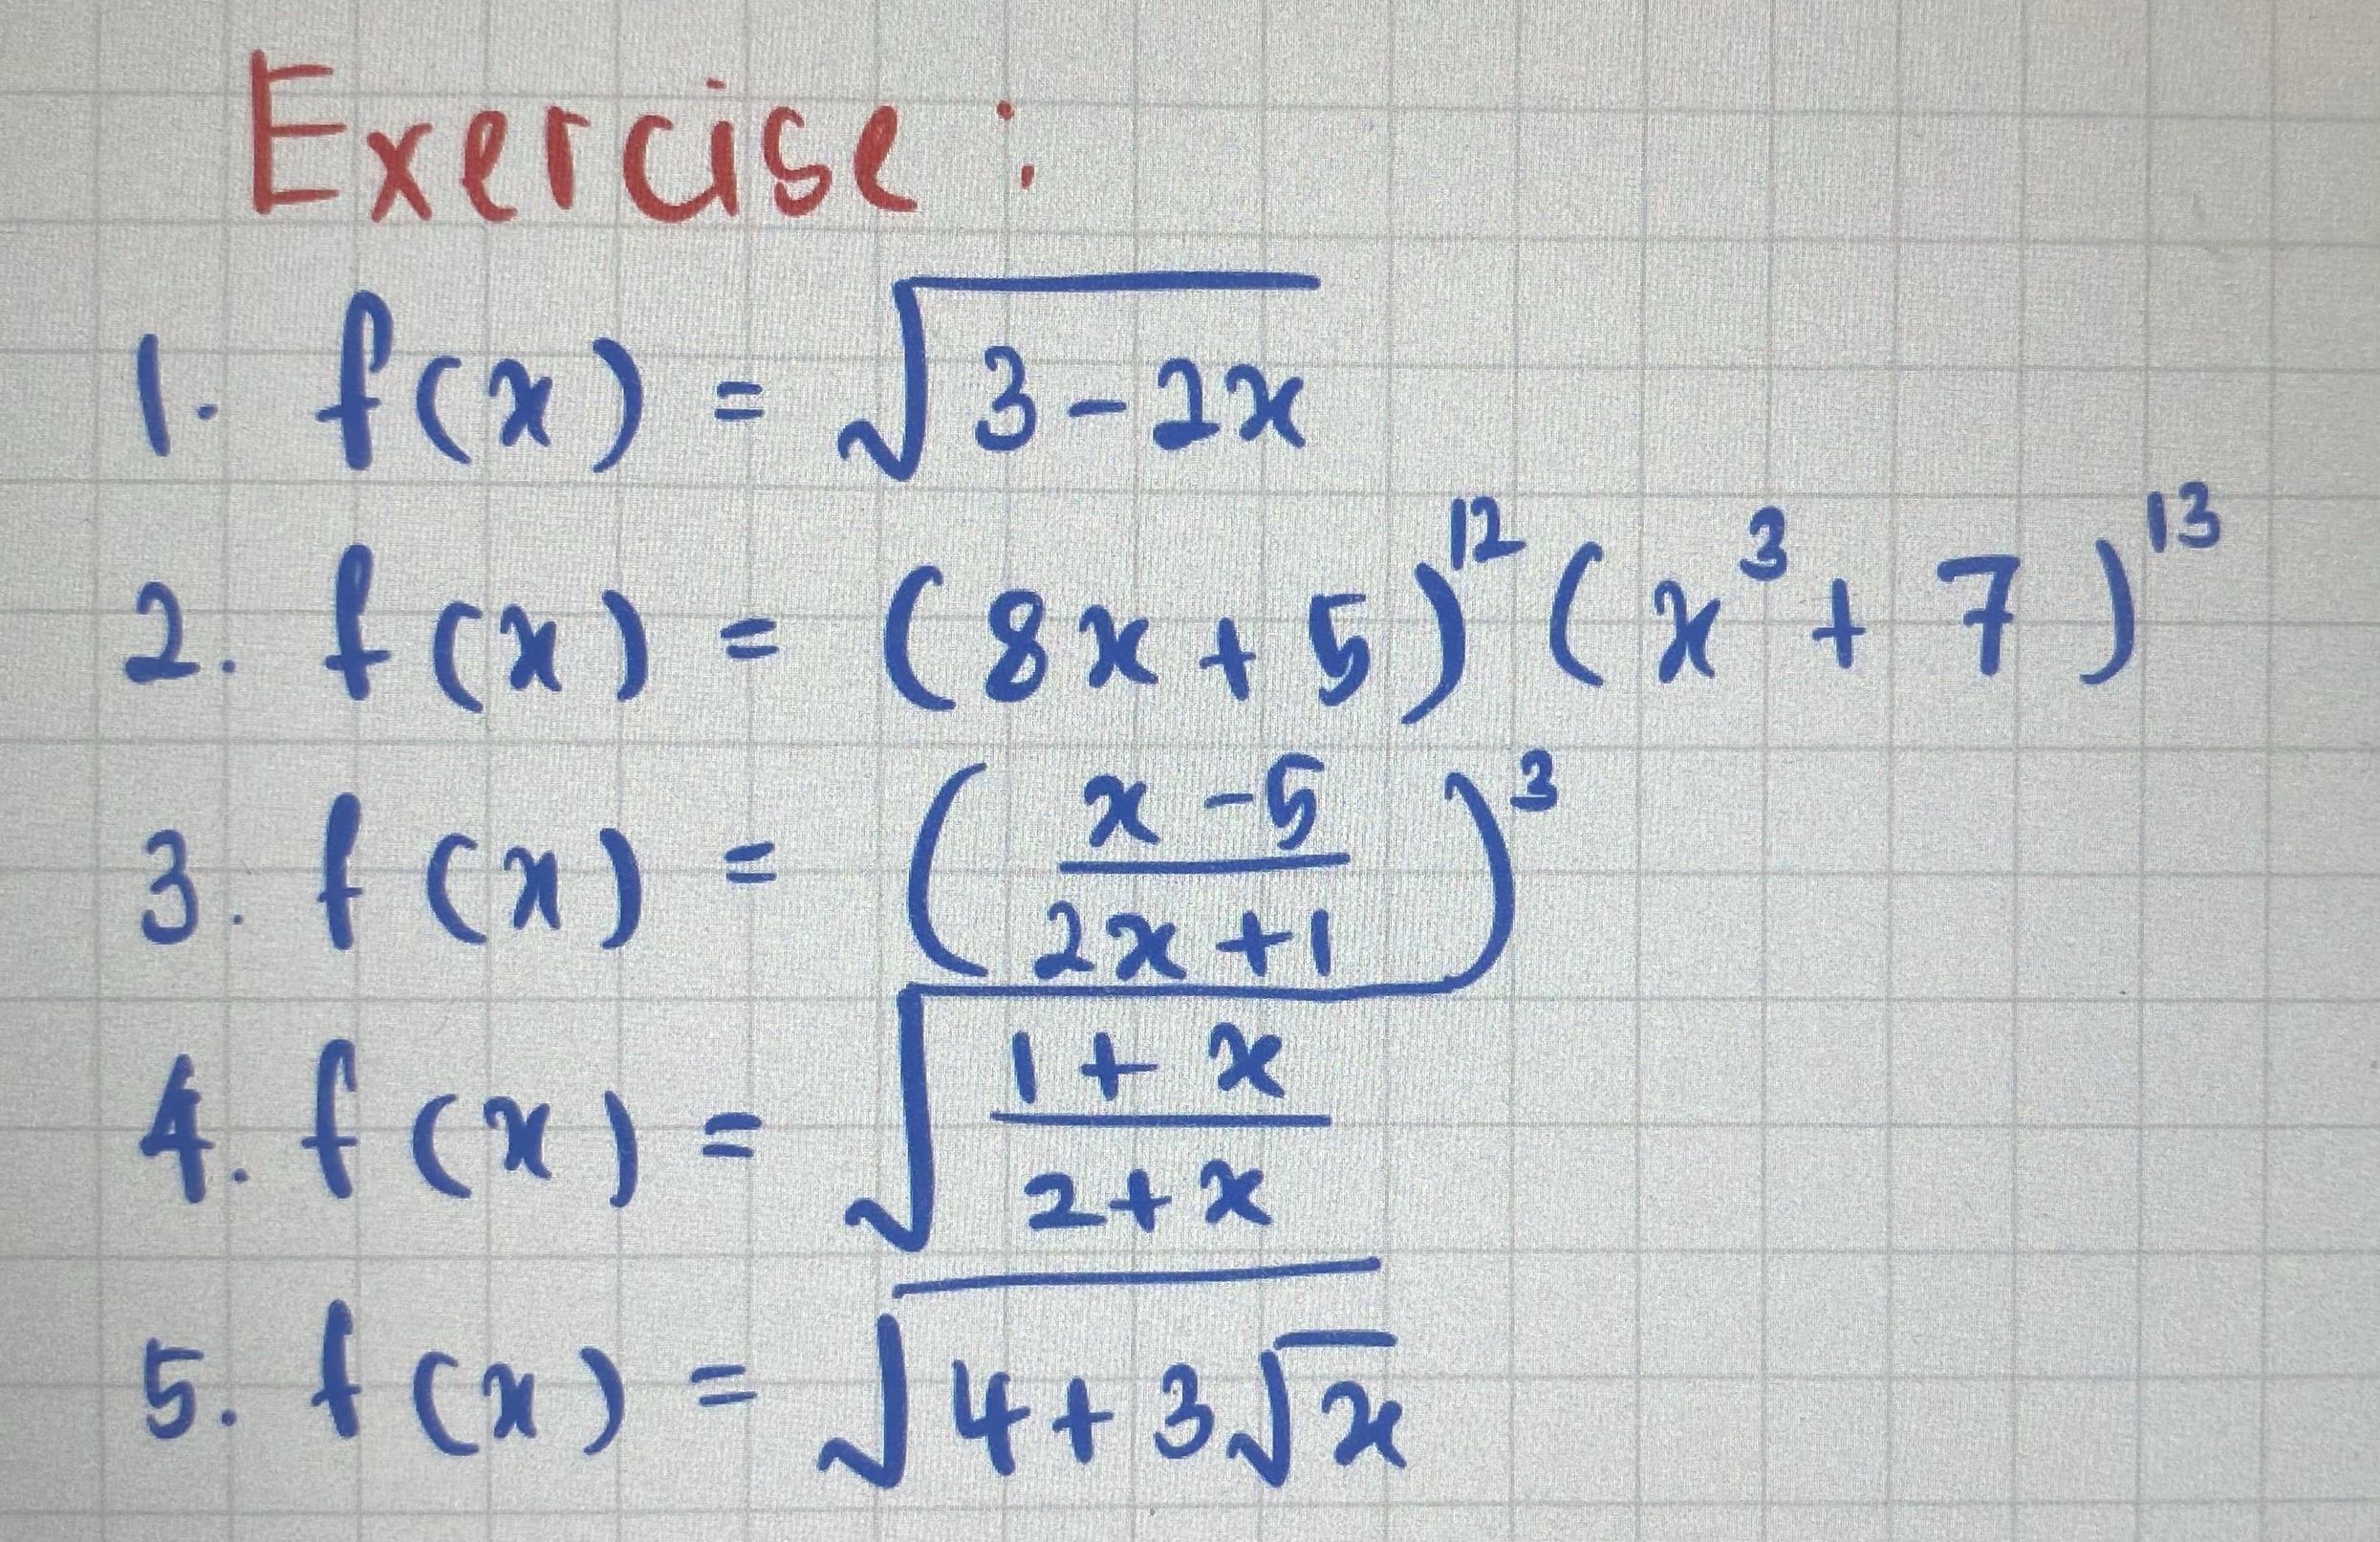 Exercise :
1. f(x) = √(3-2x)
2. f(x) = (8x+5)¹² (x³+7)¹³
3. f(x) = ((x-5)/(2x+1))³
4. f(x) = √((1+x)/(2+x))
5. f(x) = √(4+3√x)